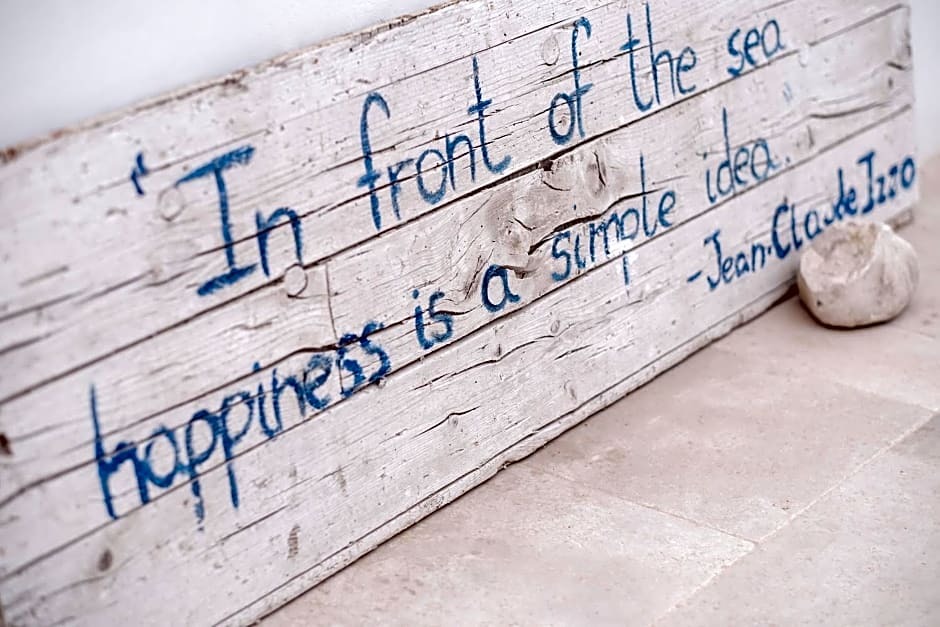 "In front of the sea
happiness is a simple idea.
-Jean-Claude Izzo